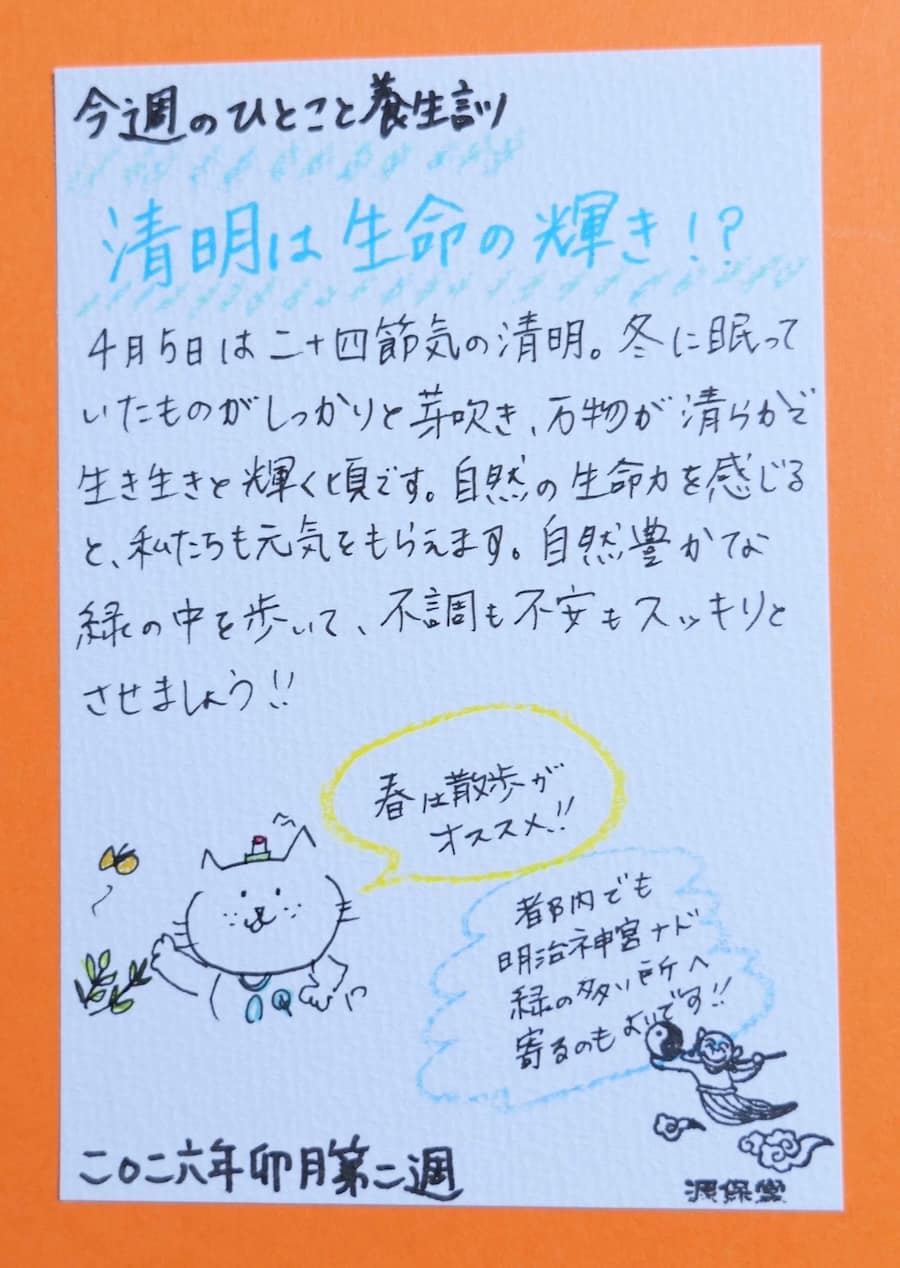 今週のひとこと養生訓
清明は生命の輝き!?
4月5日は二十四節気の清明。冬に眠って
いたものがしっかりと芽吹き、万物が清らかで
生き生きと輝く頃です。自然の生命力を感じる
と、私たちも元気をもらえます。自然豊かな
緑の中を歩いて、不調も不安もスッキリと
させましょう!!
春は散歩が
オススメ!!
都内でも
明治神宮ナド
緑の多い所へ
寄るのもよいです!!
二〇二六年卯月第二週
源保堂